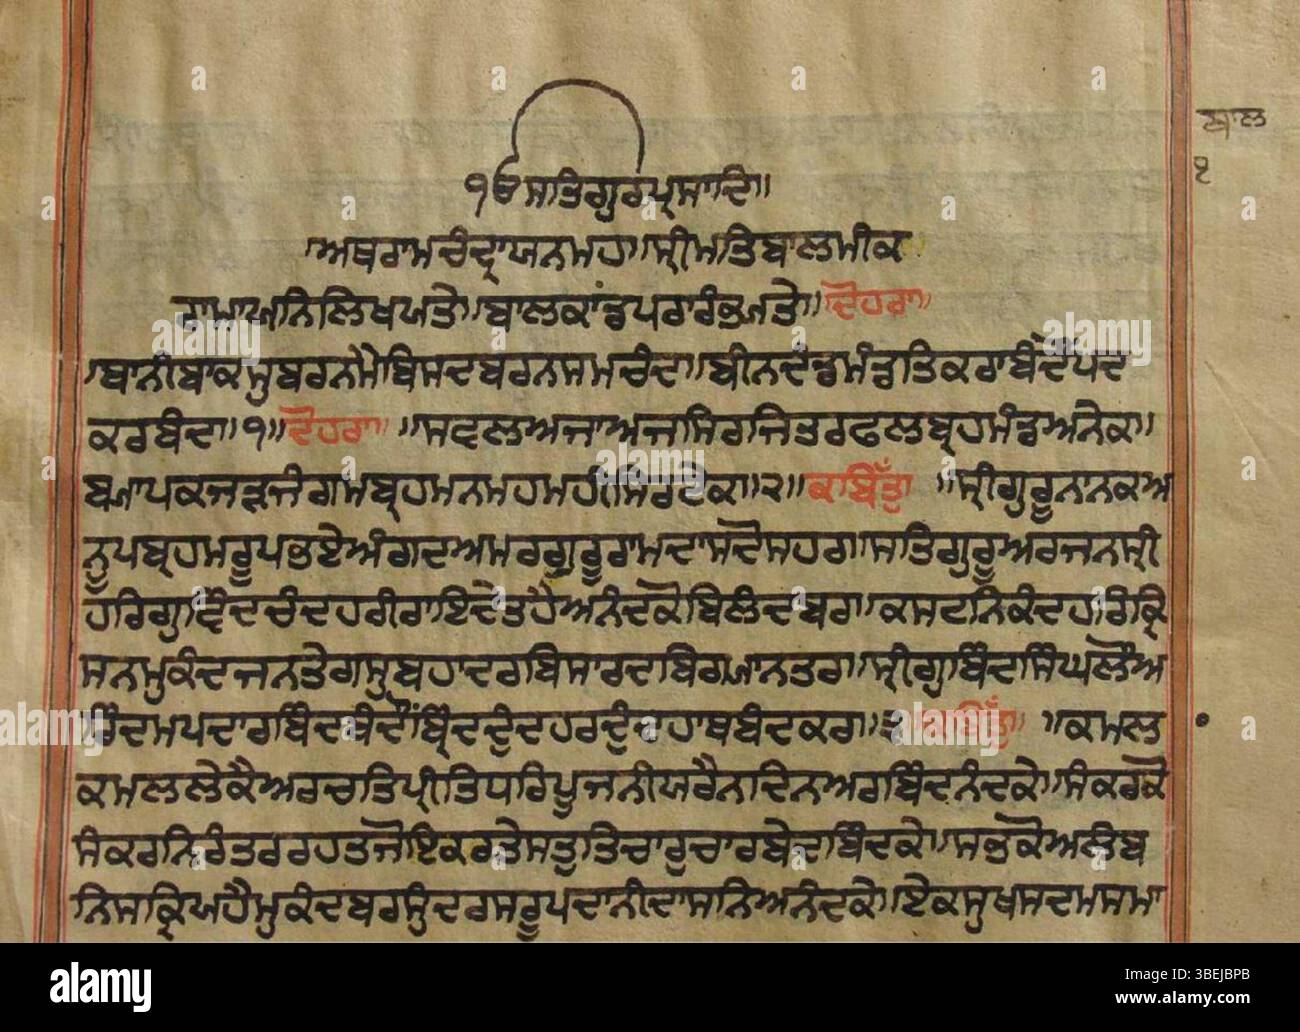 ੴ ਸਤਿਗੁਰਪ੍ਰਸਾਦਿ॥
ਬਾਲ
੧
॥ਅਥਰਾਮਚੰਦ੍ਰਾਯਨਮਹ॥ਸ੍ਰੀਮਤਿਬਾਲਮੀਕ
ਰਾਮਾਯਨਿਲਿਖਯਤੇ॥ਬਾਲਕਾਂਡਪਰਾਰੰਭਯਤੇ॥ਦੋਹਰਾ॥
॥ਬਾਨੀਬਾਕਸੁਬਰਨਮੈਬਿਸਦਬਰਨਸਮਚੰਦਾ॥ਬੀਨਦੰਡਮੰਡਤਿਕਰਾਬੰਦੌਂਪਦ
ਕਰਬੰਦਾ॥੧॥ਦੋਹਰਾ॥ ॥ਸਫਲਅਜਾਅਜਸਿਰਜਿਤਰਫਲਬ੍ਰਹਮੰਡਅਨੇਕਾ॥
ਬਯਾਪਕਜੜਜੰਗਮਬ੍ਰਹਮਨਮਹਮਹੀਸਿਰਟੇਕਾ॥੨॥ਕਬਿੱਤਾ ॥ਸ੍ਰੀਗੁਰੂਨਾਨਕਅ
ਨੂਪਬ੍ਰਹਮਰੂਪਭਏਅੰਗਦਅਮਰਗੁਰੂਰਾਮਦਾਸਦੋਸਹਰਾ॥ਸਤਿਗੁਰੂਅਰਜਨਸ੍ਰੀ
ਹਰਿਗੁਵਿੰਦਚੰਦਹਰੀਰਾਇਦੇਤਹੈਅਨੰਦਕੋਬਿਲੰਦਬਰਾ॥ਕਸਟਨਿਕੰਦਹਰਿਕ੍ਰਿ
ਸਨਮੁਕੰਦਜਨਤੇਗਸੁਬਹਾਦਰਬਿਸਾਰਦਬਿਗਯਾਨਤਰਾ॥ਸ੍ਰੀਗੁਬਿੰਦਸਿੰਘਲੌਅ
ਰਿੰਦਮਪਦਾਰਬਿੰਦਬੰਦੌਂਬ੍ਰਿੰਦਦੁੰਦਹਰਦੁੰਦਹਾਥਬੰਦਕਰਾ॥੩ ਕਬਿੱਤਾ ॥ਕਮਲ
ਕਮਲਲੇਕੈਅਰਚਤਿਪ੍ਰੀਤਿਧਰਿਪੂਜਨੀਯਰੈਨਦਿਨਅਰਬਿੰਦਨੰਦਕੇ॥ਸੰਕਰਕੋ
ਸੰਕਰਨਿਰੰਤਰਰਹਤਜੋਇਕਰਤੇਸਤੁਤਿਚਾਰੁਚਾਰਬੇਦਾਬਿੰਦਕੇ॥ਸਭਕੋਅਲਿਬ
ਨਿਸਕ੍ਰਿਯਹੈਮੁਕੰਦਬਰਸੁੰਦਰਸਰੂਪਦਾਨੀਦਾਸਨਿਅਨੰਦਕੇ॥ਏਕਸੁਖਸਦਮਸਮਾ
alamy
Image ID: 3BEJBPB
www.alamy.com